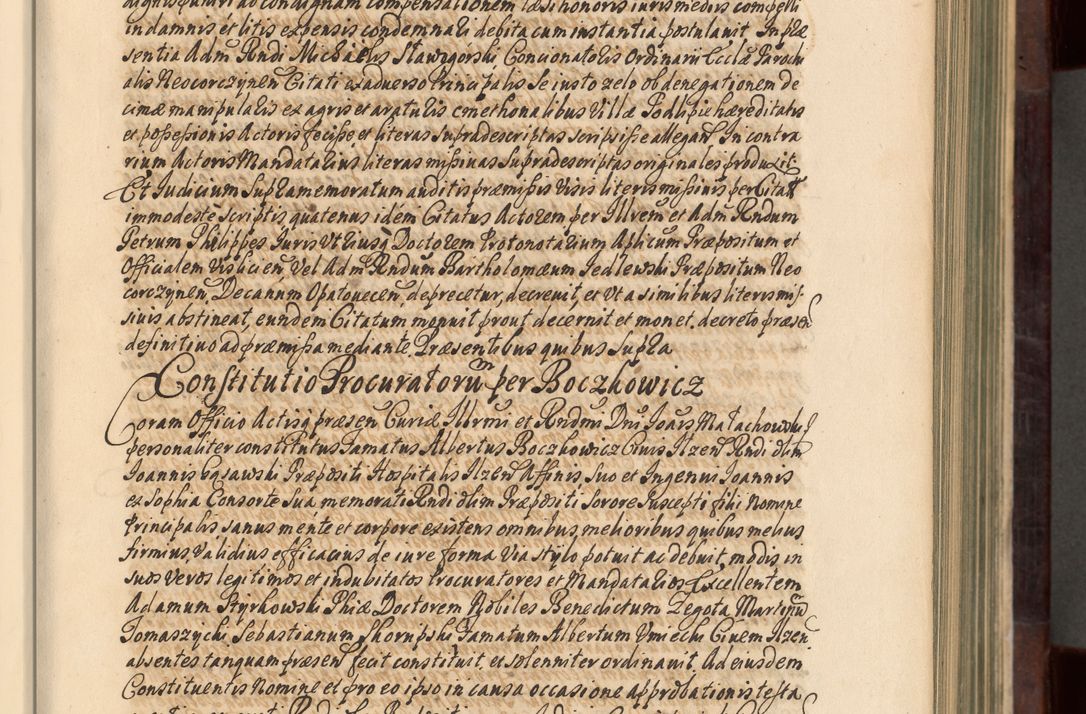 dignis puniri ad condignam compensationem læsi honoris iuris medijs compelli
in damnis et litis expensis condemnari debita cum instantia postulavit. In præ
sentia Adm Rndi Michaelis Stawogórski Concionatoris Ordinarij Ecclæ Parochi
alis Neocorczynen Citati ex adverso Principalis se iusto zelo ob denegationem de
cimæ manipularis ex agris et araturis cmethonalibus Villæ Podlipie hæreditatis
et possessionis Actoris fecisse, et literas supradescriptas scripsisse allegan̄. In contra
rium Actoris Mandatarius literas missivas supradescriptas originales produxit.
Et Iudicium supramemoratum auditis præmissis visis literis missivis per Citatū
immodestè scriptis quatenus idem Citatus Actorem per Illrem et Adm Rndum
Petrum Philippes Iuris Utriusq Doctorem Protonotarium Aplicum Præpositum et
Officialem Vislicien̄ vel Adm Rndum Bartholomæum Jedlewski Præpositum Neo
corczynen̄, Decanum Opatovecen̄, deprecetur, decrevit, et ut a similibus literis mis
sivis abstineat, eundem Citatum monuit prout decernit et monet. decreto præsen̄
definitivo ad præmissa mediante. Præsentibus quibus supra
Constitutio Procuratorum per Boczkowicz
Coram Officio Actisq præsen̄ Curiæ Illrmi et Rndmi Dni Joānis Małachowski
personaliter constitutus Famatus Albertus Boczkowicz Civis Ilzen̄ Rndi olim
Joannis Præpositi Hospitalis Ilzen̄ Affinis suo et Ingenui Joannis
ex Sophia Consorte sua memorati Rndi olim Præpositi sorore suscepti filij nomine
Principalis sanus mente et corpore existens omnibus, melioribus quibus melius
firmius, validius efficacius de iure forma via stylo potuit ac debuit, modis in
suos veros legitimos et indubitatos Procuratores et Mandatarios Excellentem
Adamum Styrkowski Phiæ Doctorem Nobiles Benedictum Zegota, Martinū
Tomaszycki Sebastianum Skorupski Famatum Albertum Umiecki Civem Ilzen̄
absentes tanquam præsen̄ fecit constituit, et solenniter ordinavit. Ad eiusdem
Constituentis nomine et pro eo ipso in causa occasione approbationis testa